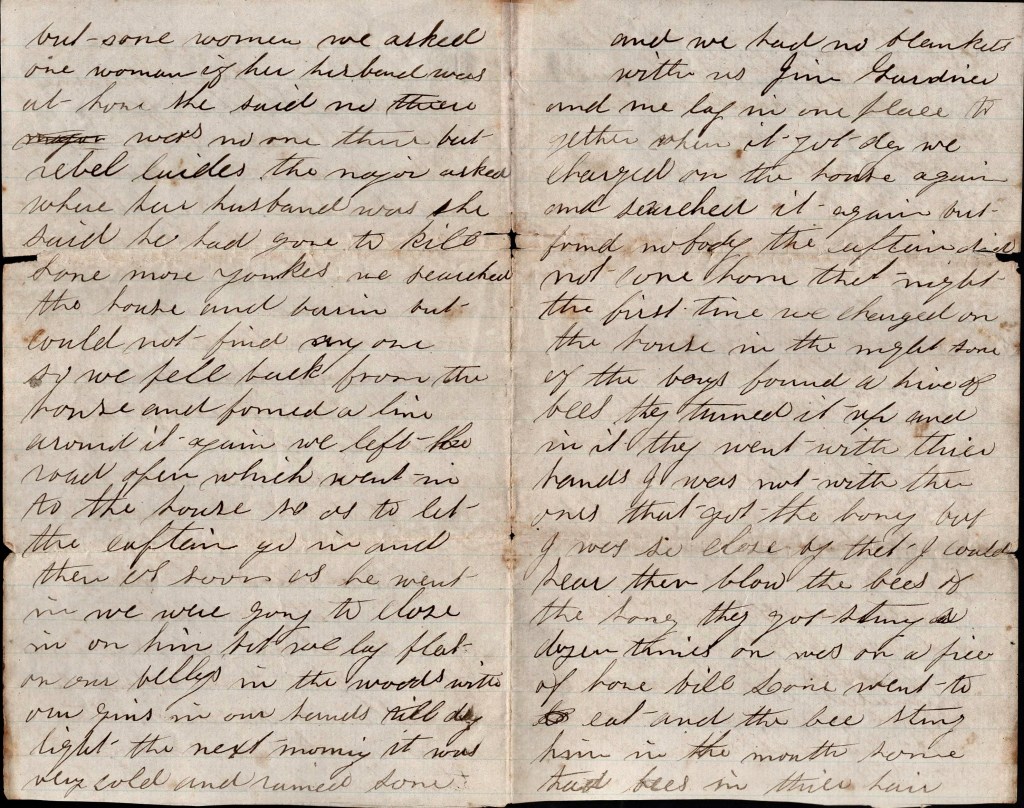 but some women we asked
one woman if her husband was
at home she said no there
major was no one there but
rebel laides the major asked
where her husband was she
said he had gone to kill
some more yankes we searched
the house and barin but
could not find any one
so we fell back from the
house and formed a line
around it again we left the
road open which went in
to the house so as to let
the captain go in and
then as soon as he went
in we were gong to close
in on him but we lay flat
on our bellys in the woods with
our guns in our hands till day
light the next morning it was
very cold and rained some
and we had no blankets
with us Jim Gardner
and me lay in one place to
gether when it got day we
charged on the house again
and searched it again but
found nobody the captain did
not come home that night
the first time we charged on
the house in the night some
of the boys found a hive of
bees they turned it up and
in it they went with thier
hands I was not with the
ones that got the honey but
I was so close by that I could
hear them blow the bees of
the honey they got stung a
dozen times on was on a piec
of hone bill Lone went to
eat and the bee stung
him in the mouth some
had bees in thier hair